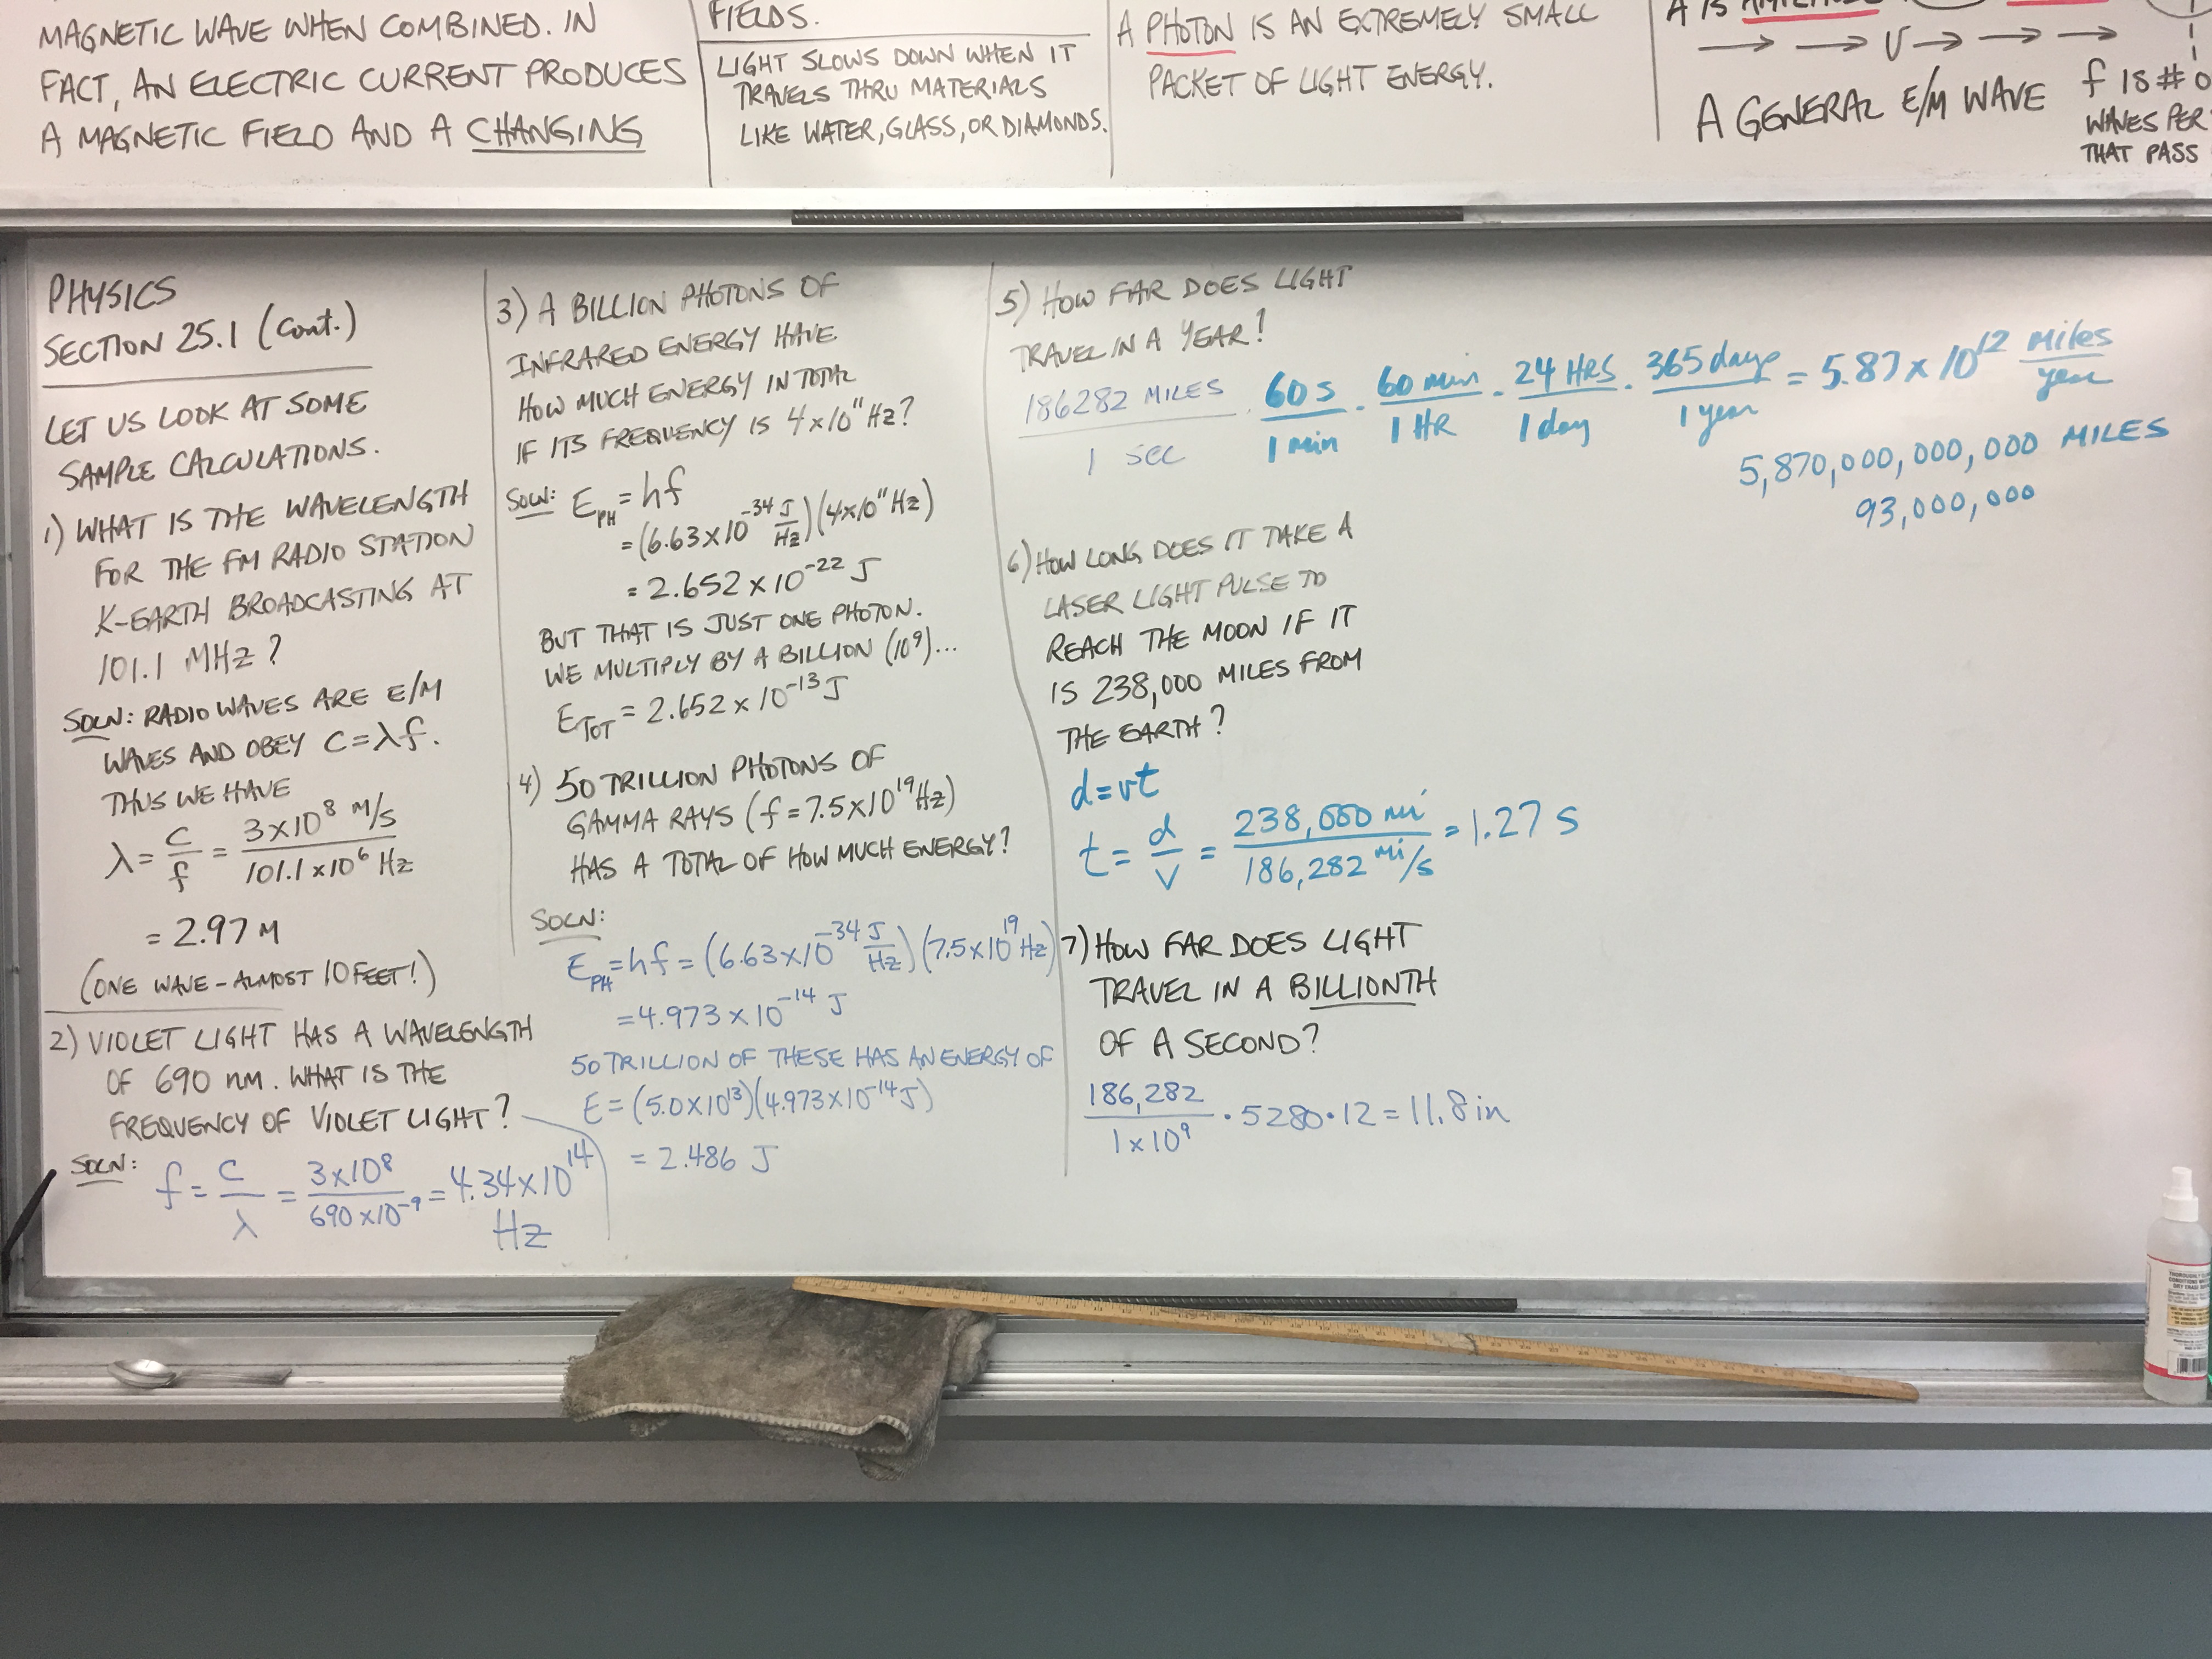 MAGNETIC WAVE WHEN COMBINED. IN
FACT, AN ELECTRIC CURRENT PRODUCES
A MAGNETIC FIELD AND A CHANGING
FIELDS.
LIGHT SLOWS DOWN WHEN IT
TRAVELS THRU MATERIALS
LIKE WATER, GLASS, OR DIAMONDS.
A PHOTON IS AN EXTREMELY SMALL
PACKET OF LIGHT ENERGY.
A IS AMPLITUDE
→ → V → → →
A GENERAL E/M WAVE
f IS # O
WAVES PER
THAT PASS
PHYSICS
SECTION 25.1 (Cont.)
LET US LOOK AT SOME
SAMPLE CALCULATIONS.
1) WHAT IS THE WAVELENGTH
FOR THE FM RADIO STATION
K-EARTH BROADCASTING AT
101.1 MHz?
SOLN: RADIO WAVES ARE E/M
WAVES AND OBEY C=λf.
THUS WE HAVE
λ = C/f = 3x10⁸ M/S / 101.1x10⁶ Hz
= 2.97 M
(ONE WAVE - ALMOST 10 FEET!)
2) VIOLET LIGHT HAS A WAVELENGTH
OF 690 nm. WHAT IS THE
FREQUENCY OF VIOLET LIGHT?
SOLN: f = C/λ = 3x10⁸ / 690x10⁻⁹ = 4.34x10¹⁴
Hz
3) A BILLION PHOTONS OF
INFRARED ENERGY HAVE
HOW MUCH ENERGY IN TOTAL
IF ITS FREQUENCY IS 4x10¹¹ Hz?
SOLN: E_PH = hf
= (6.63x10⁻³⁴ J/Hz)(4x10¹¹ Hz)
= 2.652 x 10⁻²² J
BUT THAT IS JUST ONE PHOTON.
WE MULTIPLY BY A BILLION (10⁹)...
E_TOT = 2.652 x 10⁻¹³ J
4) 50 TRILLION PHOTONS OF
GAMMA RAYS (f = 7.5x10¹⁹ Hz)
HAS A TOTAL OF HOW MUCH ENERGY?
SOLN:
E_PH = hf = (6.63x10⁻³⁴ J/Hz)(7.5x10¹⁹ Hz)
= 4.973 x 10⁻¹⁴ J
50 TRILLION OF THESE HAS AN ENERGY OF
E = (5.0x10¹³)(4.973x10⁻¹⁴ J)
= 2.486 J
5) HOW FAR DOES LIGHT
TRAVEL IN A YEAR?
186282 MILES / 1 SEC · 60 s / 1 min · 60 min / 1 HR · 24 HRS / 1 day · 365 days / 1 year = 5.87 x 10¹² Miles / year
5,870,000,000,000 MILES
93,000,000
6) HOW LONG DOES IT TAKE A
LASER LIGHT PULSE TO
REACH THE MOON IF IT
IS 238,000 MILES FROM
THE EARTH?
d=vt
t = d/v = 238,000 mi / 186,282 mi/s = 1.27 s
7) HOW FAR DOES LIGHT
TRAVEL IN A BILLIONTH
OF A SECOND?
186,282 / 1x10⁹ · 5280 · 12 = 11.8 in